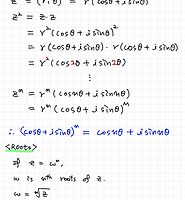 z = (r, θ) = r (cosθ + i sinθ)
z² = z · z
= r² (cosθ + i sinθ)²
= r (cosθ + i sinθ) · r (cosθ + i sinθ)
= r² (cos2θ + i sin2θ)
⋮
zⁿ = rⁿ (cosnθ + i sinnθ)
= rⁿ (cosθ + i sinθ)ⁿ
∴ (cosθ + i sinθ)ⁿ = cosnθ + i sinnθ
<Roots>
If z = ωⁿ,
ω is nᵗʰ roots of z.
ω = ⁿ√z